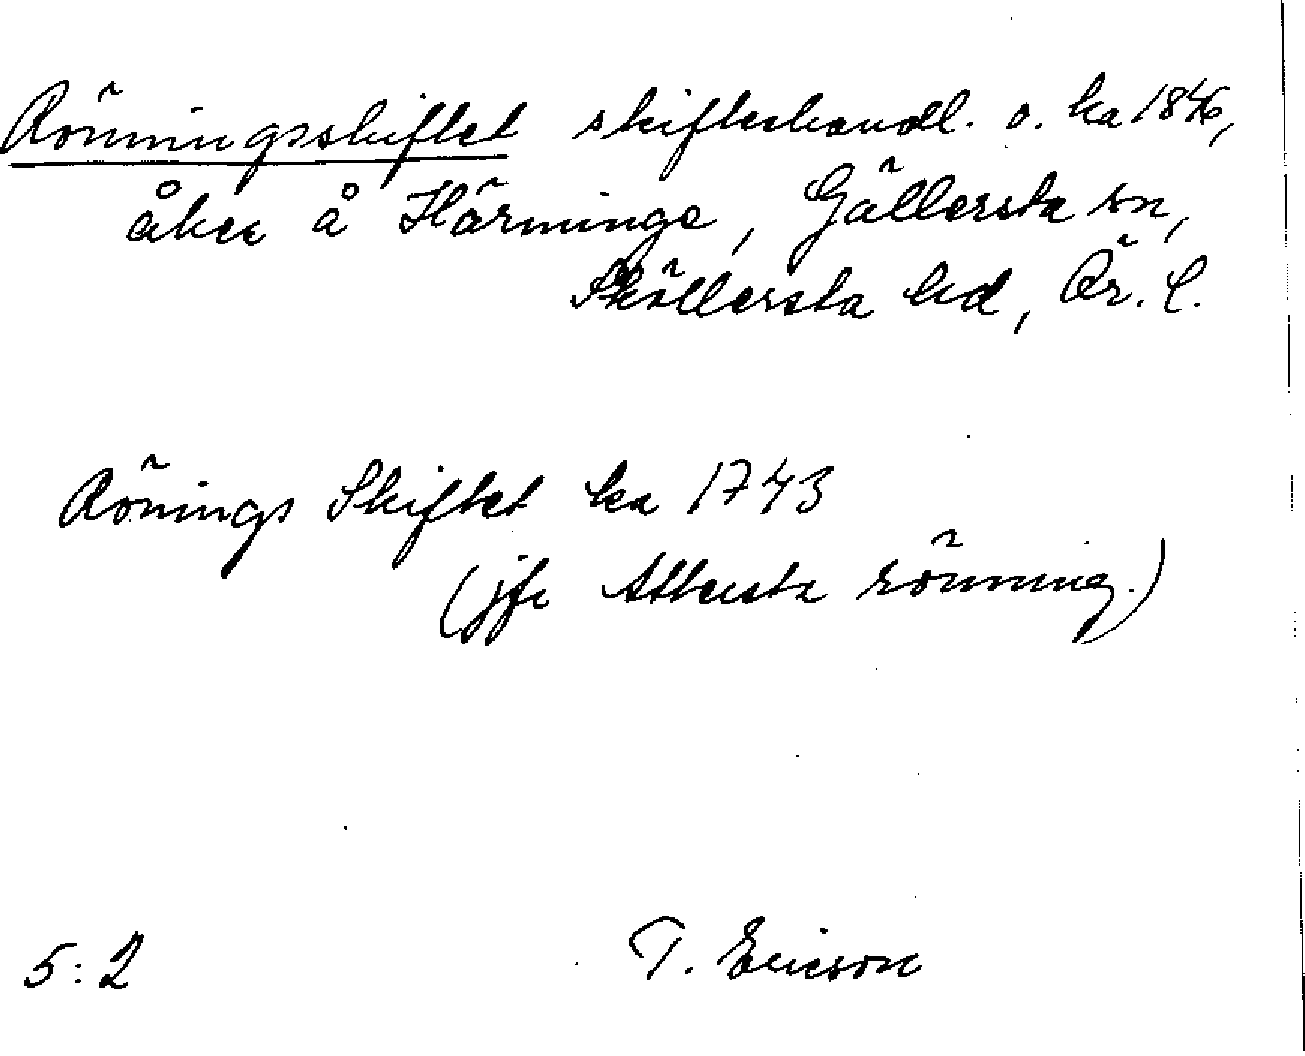 Rönningsskiftet skifteshandl. o. ka 1846,
åker å Härninge, Gällersta sn,
Sköllersta hd, Ör. l.
Rönings Skiftet ka 1743
(jfr Attersta rönning.)
5:2 T. Ericson